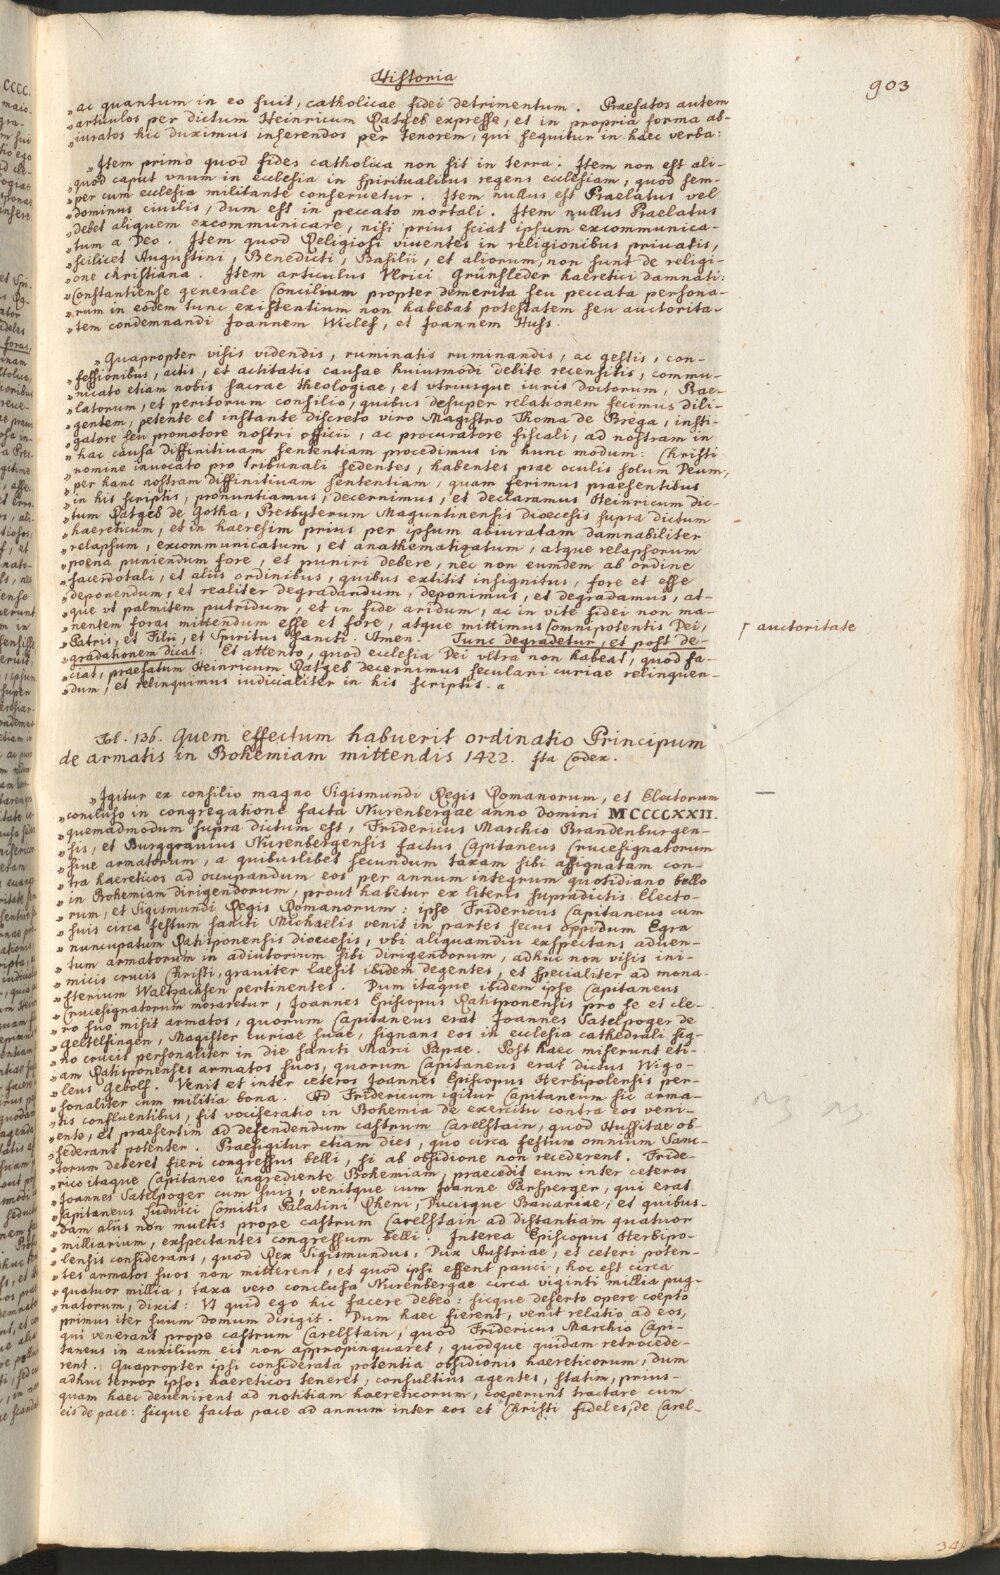 Historia
903
„ac quantum in eo fuit, catholicae fidei detrimentum. Praefatos autem
„articulos per dictum Heinricum Ratgeb expresse, et in propria forma ab-
„iuratos hic duximus inserendos per tenorem, qui sequitur in haec verba:
„Item primo quod fides catholica non sit in terra. Item non est ali-
„quod caput vnum in ecclesia in spiritualibus regens ecclesiam, quod sem-
„per cum ecclesia militante conseruetur. Item nullus est Praelatus vel
„dominus ciuilis, dum est in peccato mortali. Item nullus Praelatus
„debet aliquem excommunicare, nisi prius sciat ipsum excommunica-
„tum a Deo. Item quod Religiosi viuentes in religionibus priuatis,
„scilicet Augustini, Benedicti, Basilii, et aliorum, non sunt de religi-
„one christiana. Item articulus Vlrici Grünsleder haeretici damnati:
„Constantiense generale Concilium propter demerita seu peccata persona-
„rum in eodem tunc existentium non habebat potestatem seu auctorita-
„tem condemnandi Joannem Wiclef, et Joannem Huss.
„Quapropter visis videndis, ruminatis ruminandis, ac gestis, con-
„fessionibus, actis, et actitatis causae huiusmodi debite recensitis, commu-
„nicato etiam nobis sacrae theologiae, et vtriusque iuris Doctorum, Prae-
„latorum, et peritorum consilio, quibus desuper relationem fecimus dili-
„gentem, petente et instante discreto viro Magistro Thoma de Brega, insti-
„gatore seu promotore nostri officii, ac procuratore fiscali, ad nostram in
„hac causa diffinitiuam sententiam procedimus in hunc modum: Christi
„nomine inuocato pro tribunali sedentes, habentes prae oculis solum Deum,
„per hanc nostram diffinitiuam sententiam, quam ferimus praesentibus
„in his scriptis, pronuntiamus, decernimus, et declaramus Heinricum dic-
„tum Ratgeb de Gotha, Presbyterum Maguntinensis dioecesis supra dictum
„haereticum, et in haeresim prius per ipsum abiuratam damnabiliter
„relapsum, excommunicatum, et anathematizatum, atque relapsorum
„poena puniendum fore, et puniri debere, nec non eumdem ab ordine
„sacerdotali, et aliis ordinibus, quibus extitit insignitus, fore et esse
„deponendum, et realiter degradandum, deponimus, et degradamus, at-
„que vt palmitem putridum, et in fide aridum, ac in vite fidei non ma-
„nentem foras mittendum esse et fore, atque mittimus ⌈omnipotentis Dei,
⌈ auctoritate
„Patris, et Filii, et Spiritus Sancti. Amen. Tunc degradetur, et post de-
„gradationem dicat: Et attento, quod ecclesia Dei vltra non habeat, quod fa-
„ciat, praefatum Heinricum Ratgeb decernimus seculari curiae relinquen-
„dum, et relinquimus iudicialiter in his scriptis. a
Fol. 136. Quem effectum habuerit ordinatio Principum
de armatis in Bohemiam mittendis 1422. Ita Codex.
„Igitur ex consilio magno Sigismundi Regis Romanorum, et Electorum
„concluso in congregatione facta Nurenbergae anno domini MCCCCXXII.
„quemadmodum supra dictum est, Fridericus Marchio Brandenburgen-
„sis, et Burggrauius Nurenbergensis factus Capitaneus Crucesignatorum
„siue armatorum, a quibuslibet secundum taxam sibi assignatam con-
„tra haereticos ad occupandum eos per annum integrum quotidiano bello
„in Bohemiam dirigendorum, prout habetur ex literis supradictis Electo-
„rum, et Sigismundi Regis Romanorum: ipse Fridericus Capitaneus cum
„suis circa festum sancti Michaelis venit in partes secus oppidum Egra
„nuncupatum Ratisponensis dioecesis, vbi aliquamdiu exspectans aduen-
„tum armatorum in adiutorium sibi dirigendorum, adhuc non visis ini-
„micis crucis Christi, grauiter laesit ibidem degentes, et specialiter ad mona-
„sterium Waltsachsen pertinentes. Dum itaque ibidem ipse Capitaneus
„Crucesignatorum moraretur, Joannes Episcopus Ratisponensis pro se et cle-
„ro suo misit armatos, quorum Capitaneus erat Joannes Satelpoger de
„Geltelfingen, Magister curiae suae, signans eos in ecclesia cathedrali sig-
„no crucis personaliter in die sancti Marci Papae. Post haec miserunt eti-
„am Ratisponenses armatos suos, quorum Capitaneus erat dictus Wigo-
„leus Gebolf. Venit et inter ceteros Joannes Episcopus Herbipolensis per-
„sonaliter cum militia bona. Ad Fridericum igitur Capitaneum sic arma-
„tis confluentibus, fit vociferatio in Bohemia de exercitu contra eos veni-
„ente, et praesertim ad defendendum castrum Carelstain, quod Hussitae ob-
„sederant potenter. Praefigitur etiam dies, quo circa festum omnium Sanc-
„torum deberet fieri congressus belli, si ab obsidione non recederent. Fride-
„rico itaque Capitaneo ingrediente Bohemiam, praecedit eum inter ceteros
„Joannes Satelpoger cum suis, venitque cum Joanne Parsperger, qui erat
„Capitaneus Ludwici Comitis Palatini Rheni, Ducisque Bauariae, et quibus-
„dam aliis non multis prope castrum Carelstain ad distantiam quatuor
„milliarium, exspectantes congressum belli. Interea Episcopus Herbipo-
„lensis considerans, quod Rex Sigismundus, Dux Austriae, et ceteri poten-
„tes armatos suos non mitterent, et quod ipsi essent pauci, hoc est circa
„quatuor millia, taxa vero conclusa Nurenbergae circa viginti millia pug-
„natorum, dixit: Vt quid ego hic facere debeo: sicque deserto opere coepto
„primus iter suum domum dirigit. Dum haec fierent, venit relatio ad eos,
qui venerant prope castrum Carelstain, quod Fridericus Marchio Capi-
taneus in auxilium eis non appropinquaret, quodque quidam retrocede-
rent. Quapropter ipsi considerata potentia obsidionis haereticorum, dum
adhuc terror ipsos haereticos teneret, consultius agentes, statim, prius-
quam haec deuenirent ad notitiam haereticorum, coeperunt tractare cum
eis de pace: sicque facta pace ad annum inter eos et Christi fideles, de Carel-